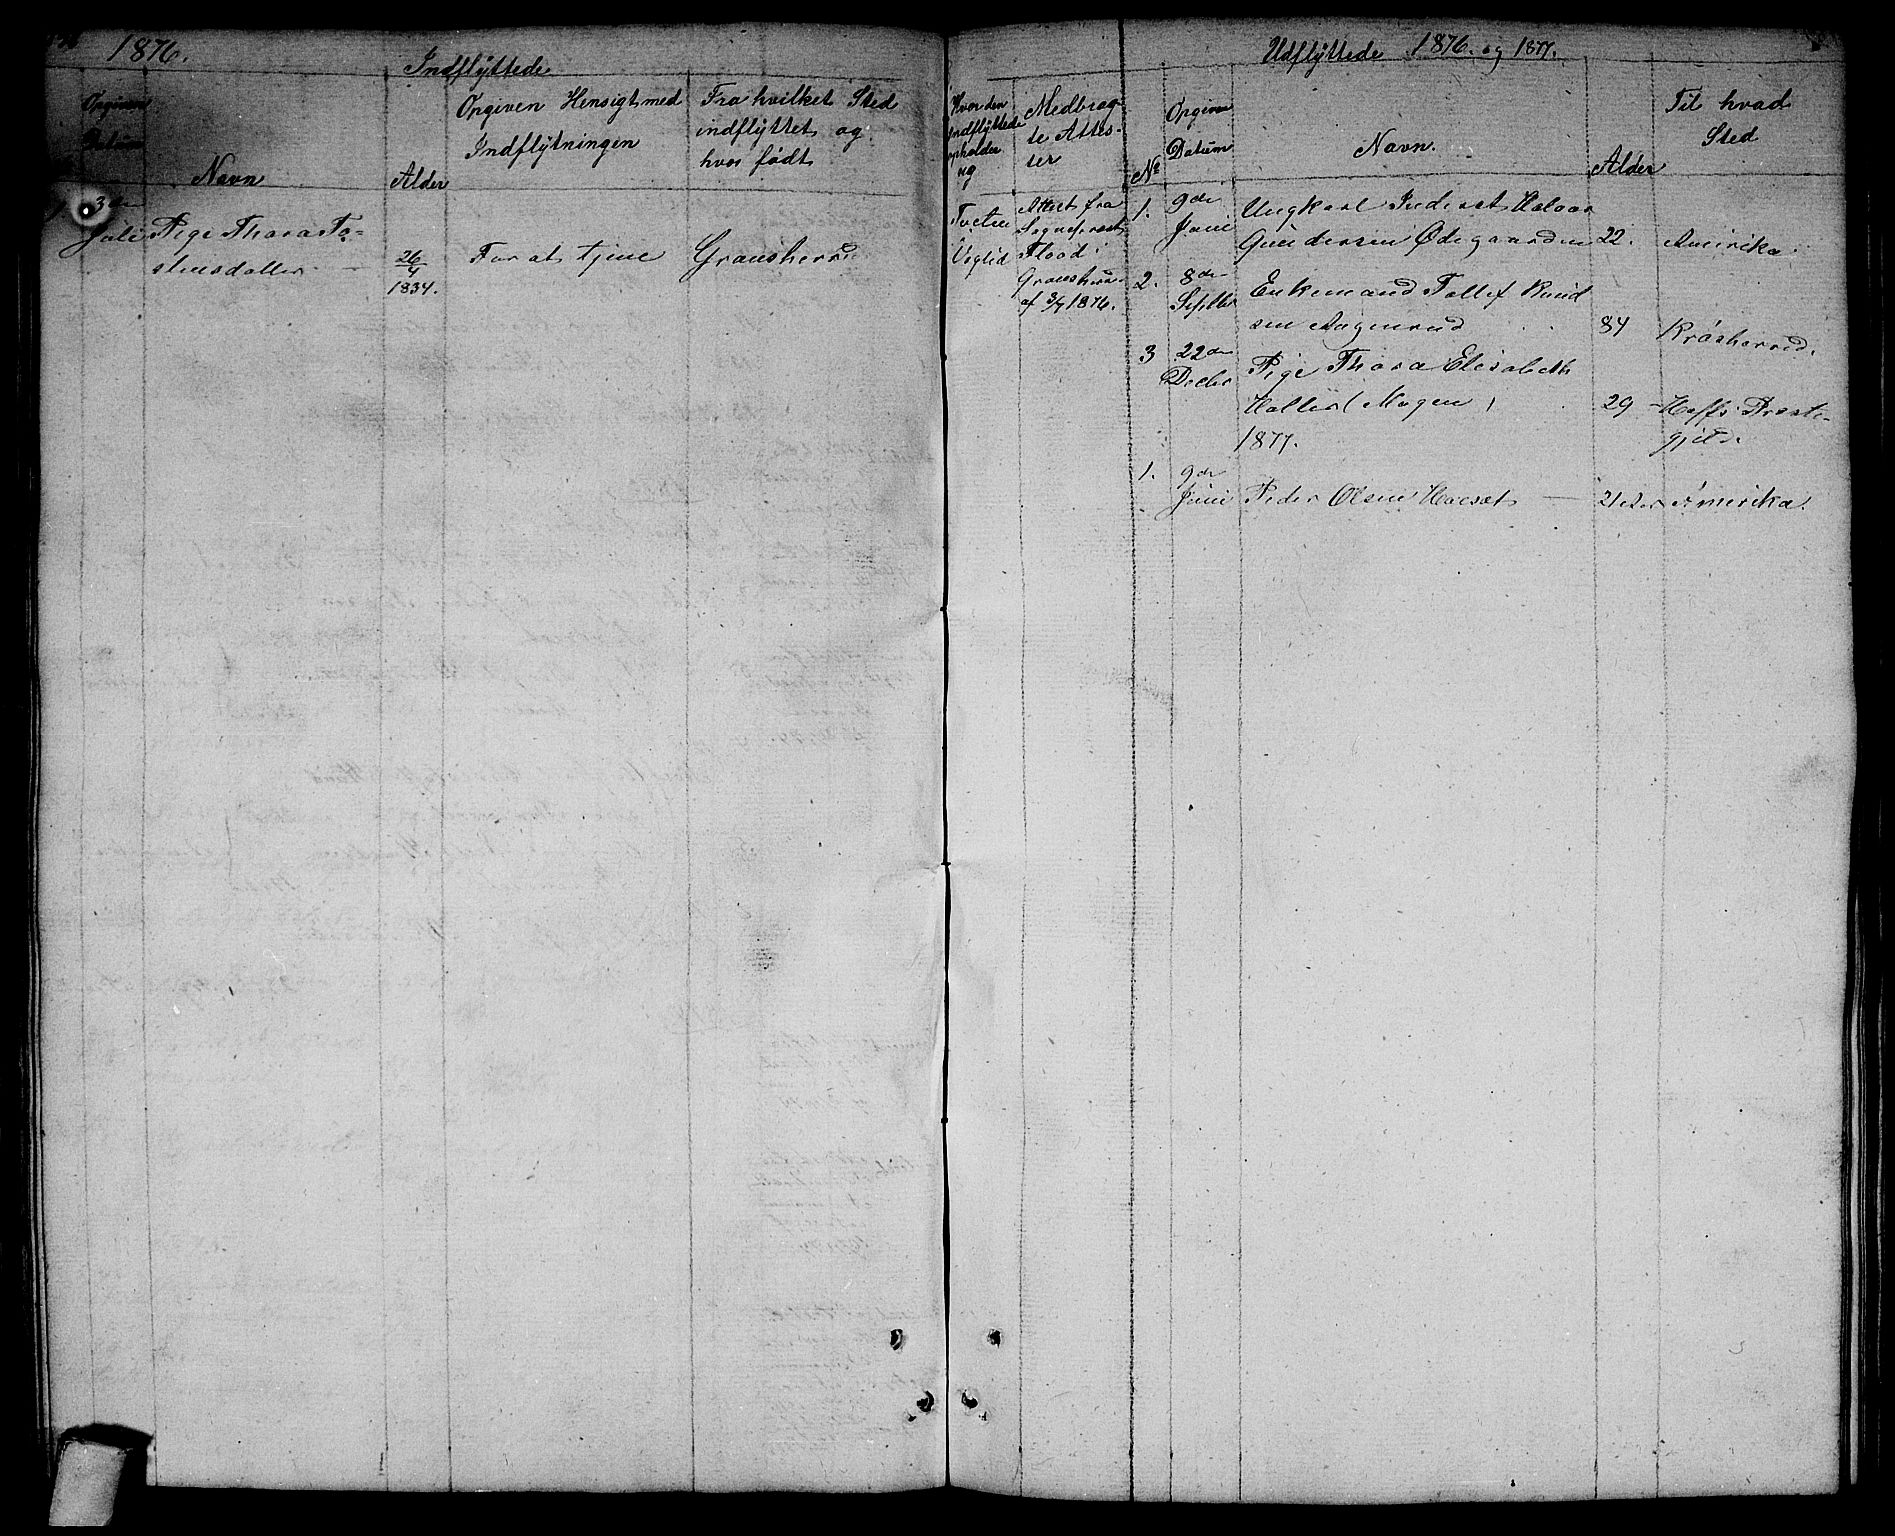 1876.
Indflyttede
Opgiven
Datum
Navn
Alder
Opgiven Hensigt med
Indflytningen
Fra hvilket Sted
indflyttet og
hvor født
Hvor den
Indflyttede
opholder
sig
Medbrag-
te Attes-
ter
1 3die
Juli
Pige Thora To-
stensdatter
26/4
1834.
For at tjene
Gransherred
Tveten
Veglid
Attest fra
Sognepræst
Flood i
Gransherred
af 3/7 1876.
Udflyttede 1876. og 1877.
No
Opgiven
Datum
Navn
Alder
Til hvad
Sted
1. 9de
Juni
Ungkarl Inderst Halvor
Gundersen Ødegaarden
22.
Amerika.
2. 8de
Septbr
Enkemand Tollef Knud
sen Aagenrud
84
Krødsherred.
3 22de
Decbr
Pige Thora Elisabeth
Halles( Mogen )
29
Hoffs Præste-
gjeld.
1877.
1. 9de
Juni
Peder Olsen
21
Amerika.